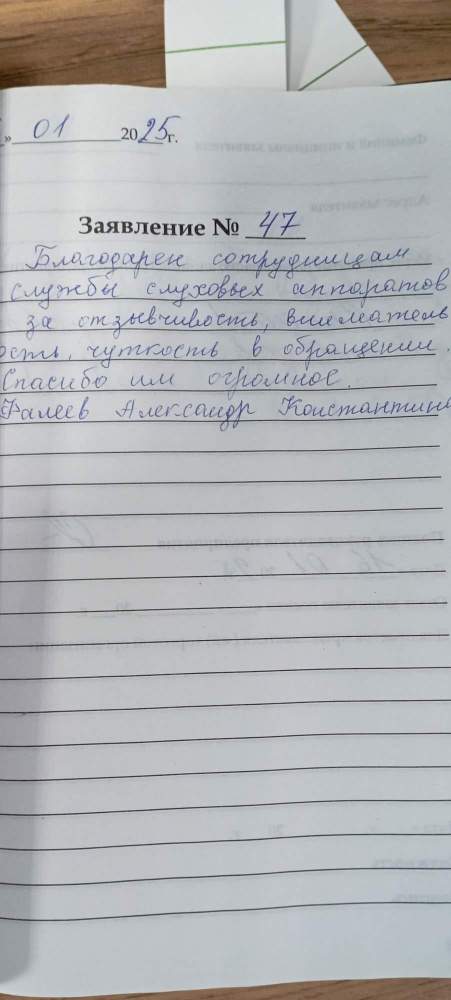 » 01 2025 г.
Заявление № 47
Благодарен сотрудницам
службы слуховых аппаратов
за отзывчивость, вниматель
ость, чуткость в обращении.
Спасибо им огромное.
Фалеев Александр Константин